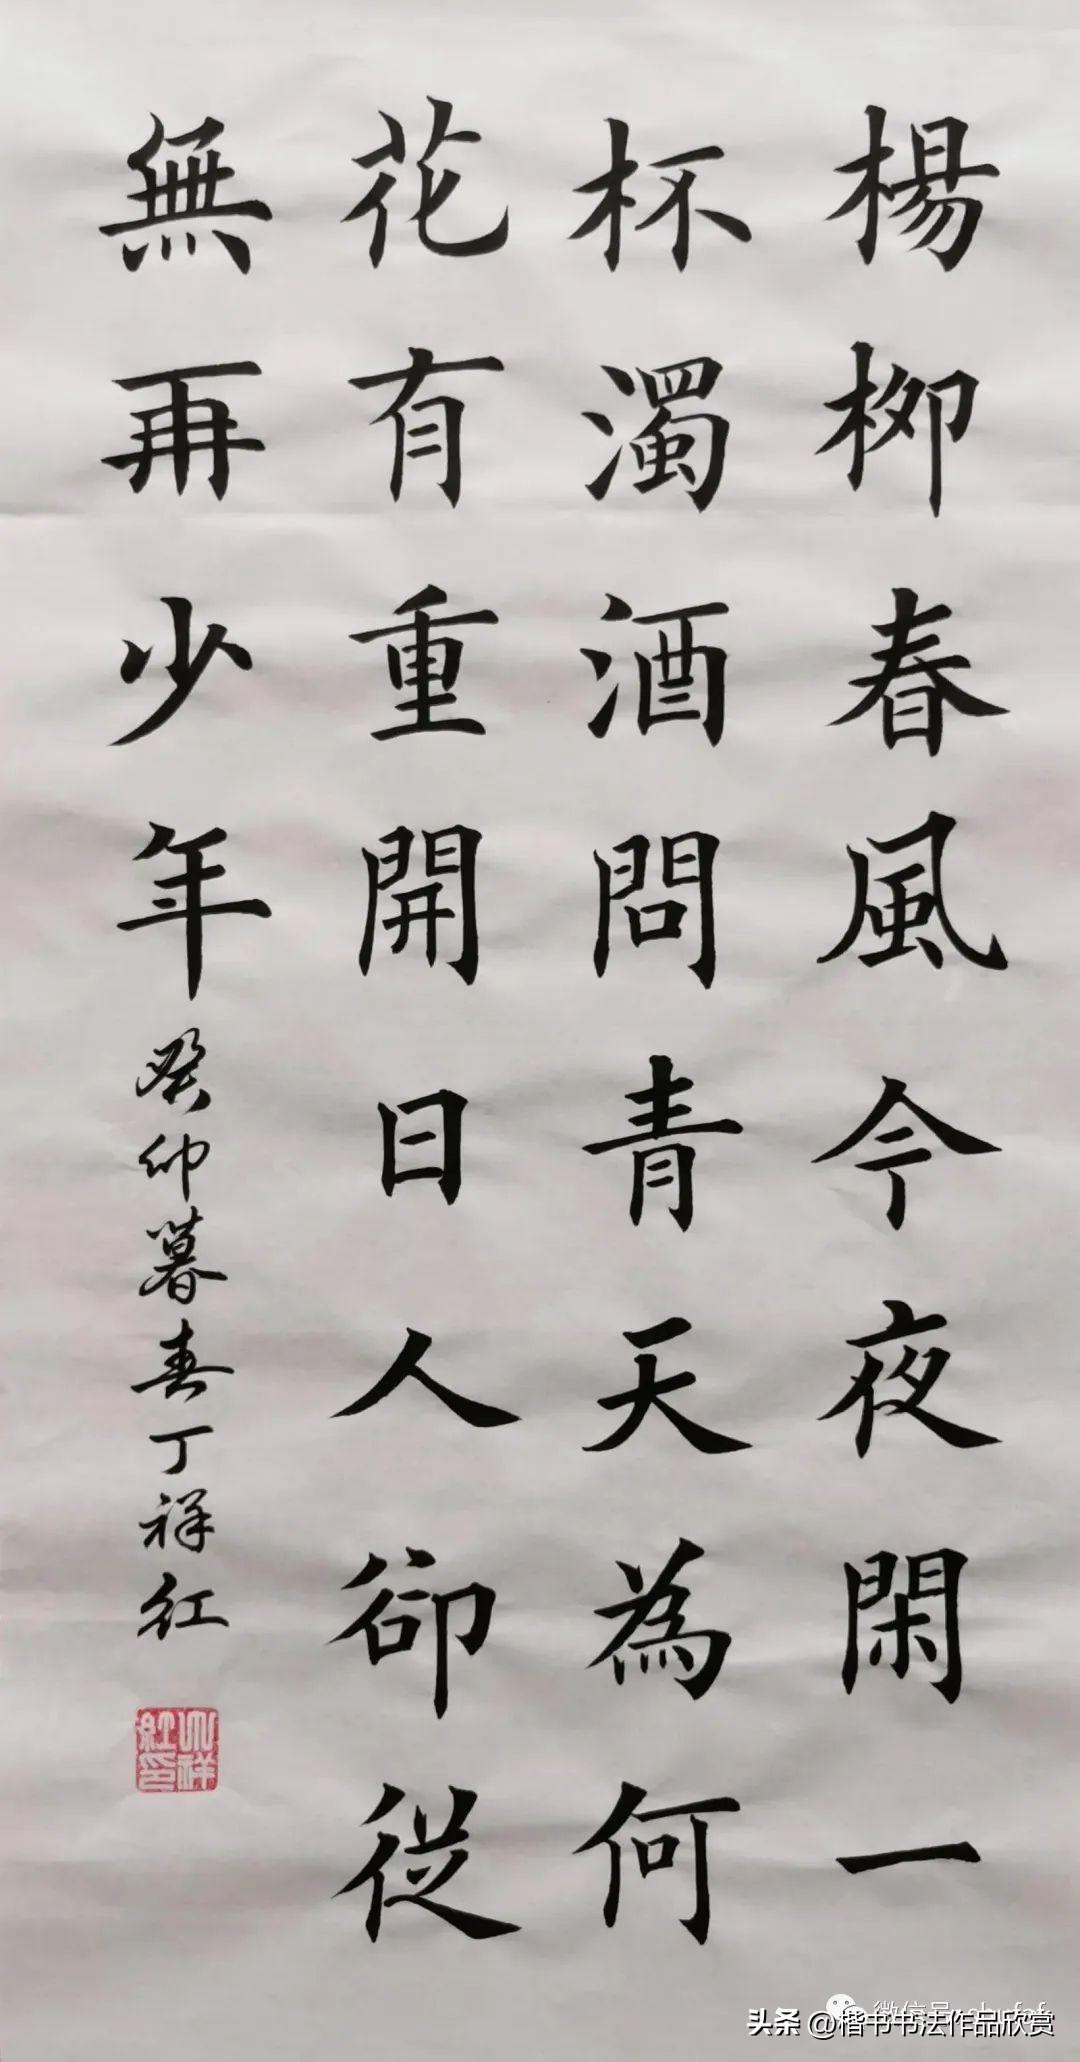 楊柳春風今夜閑一
杯濁酒問青天為何
花有重開日人卻從
無再少年
癸卯暮春丁祥红
头条 @楷书书法作品欣赏